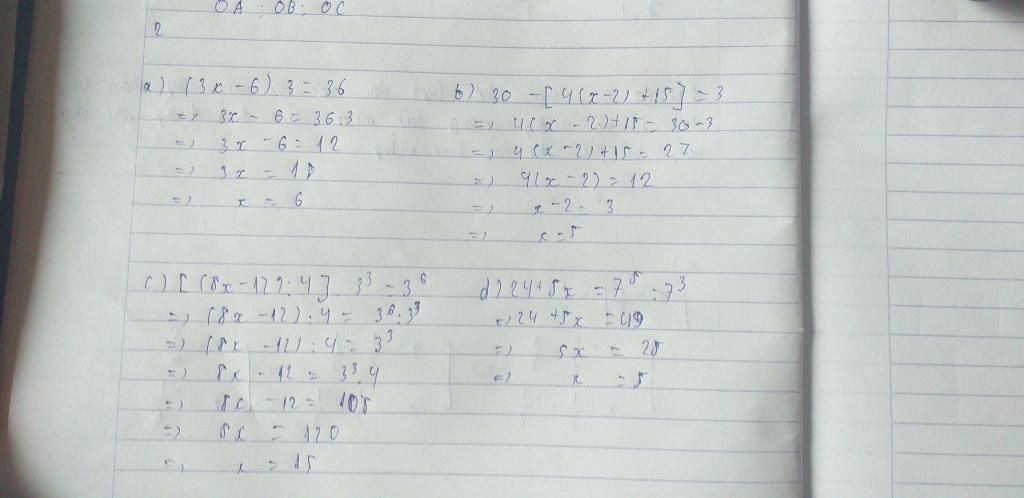 OA ; OB ; OC
2
a) (3x - 6) . 3 = 36
=> 3x - 6 = 36 : 3
=> 3x - 6 = 12
=> 3x = 18
=> x = 6
b) 30 - [4(x-2) + 15] = 3
=> 4(x - 2) + 15 = 30 - 3
=> 4(x - 2) + 15 = 27
=> 4(x - 2) = 12
=> x - 2 = 3
=> x = 5
c) [(8x - 12) : 4] . 3³ = 3⁶
=> (8x - 12) : 4 = 3⁶ : 3³
=> (8x - 12) : 4 = 3³
=> 8x - 12 = 3³ . 4
=> 8x - 12 = 108
=> 8x = 120
=> x = 15
d) 24 + 5x = 7⁵ : 7³
=> 24 + 5x = 49
=> 5x = 25
=> x = 5